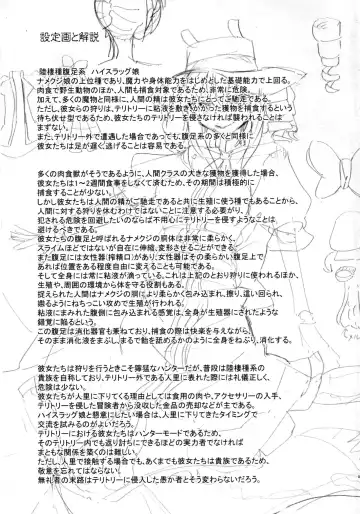 設定画と解説
陸棲種腹足系　ハイスラッグ娘
ナメクジ娘の上位種であり、魔力や身体能力をはじめとした基礎能力で上回る。
肉食で野生動物のほか、人間も捕食対象であるため、非常に危険。
加えて、多くの魔物と同様に、人間の精は彼女たちにとってご馳走である。
ただし、彼女らの狩りは、テリトリーに粘液を敷きつかった獲物を捕食するという
待ち伏せ型であるため、彼女たちのテリトリーを侵さなければ襲われることは
まずない。
また、テリトリー外で遭遇した場合であっても、腹足系の多くと同様に
彼女たちは足が遅く逃げることは容易である。
多くの肉食獣がそうであるように、人間クラスの大きな獲物を捕食した場合、
彼女たちは1～2週間食事をしなくて済むため、その期間は積極的に
捕食することが少ない。
しかし彼女たちは人間の精がご馳走であると共に生殖に使う種でもあることから、
人間に対する狩りを休むわけではないことに注意する必要があり、
犯される危険を回避したいのならば不用心にテリトリーを侵すようなことは
避けるべきである。
彼女たちの腹足と呼ばれるナメクジの胴体は非常に柔らかく、
スライムほどではないが自在に伸縮、変形させることができる。
また腹足には女性器(搾精口)があり、女性器はその柔らかな腹足上で
あれば位置をある程度自由に変えることも可能である。
そして全身には常に粘液が滴っている。これは上記のとおり狩りに使われるほか、
生殖や、周囲の環境から体を守る役割もある。
捉えられた人間はナメクジの胴により柔らかく包み込まれ、擦り、這い回られ、
嬲るようにねちっこい攻めで生殖が行われる。
粘液にまみれた腹側に包み込まれる感覚は、全身が生殖器にされたような
錯覚に陥るという。
この腹足は消化器官も兼ねており、捕食の際は快楽を与えながら、
そのまま消化液をまぶし、まるで飴を舐めるかのように全身をねぶり、消化する。
彼女たちは、狩りを行うときこそ獰猛なハンターだが、普段は陸棲種系の
貴族を自称しており、テリトリー外である人里に表れた際には礼儀正しく、
危険は少ない。
彼女たちが人里に下りてくる理由としては食用の肉や、アクセサリーの入手、
テリトリーを侵した冒険者から没収した金品の売却などが主である。
ハイスラッグ娘と懇意にしたい場合は、人里に下りてきたタイミングで
交流を試みるのがよいだろう。
テリトリーにおける彼女たちはハンターモードであるため、
そのテリトリー内でも返り討ちにできるほどの実力者でなければ
まともな関係を築くのは難しい。
ただし、人里で接触する場合でも、あくまでも彼女たちは貴族であるため、
敬意を忘れてはならない。
無礼者の末路はテリトリーに侵入した愚か者とそう変わらないだろう。